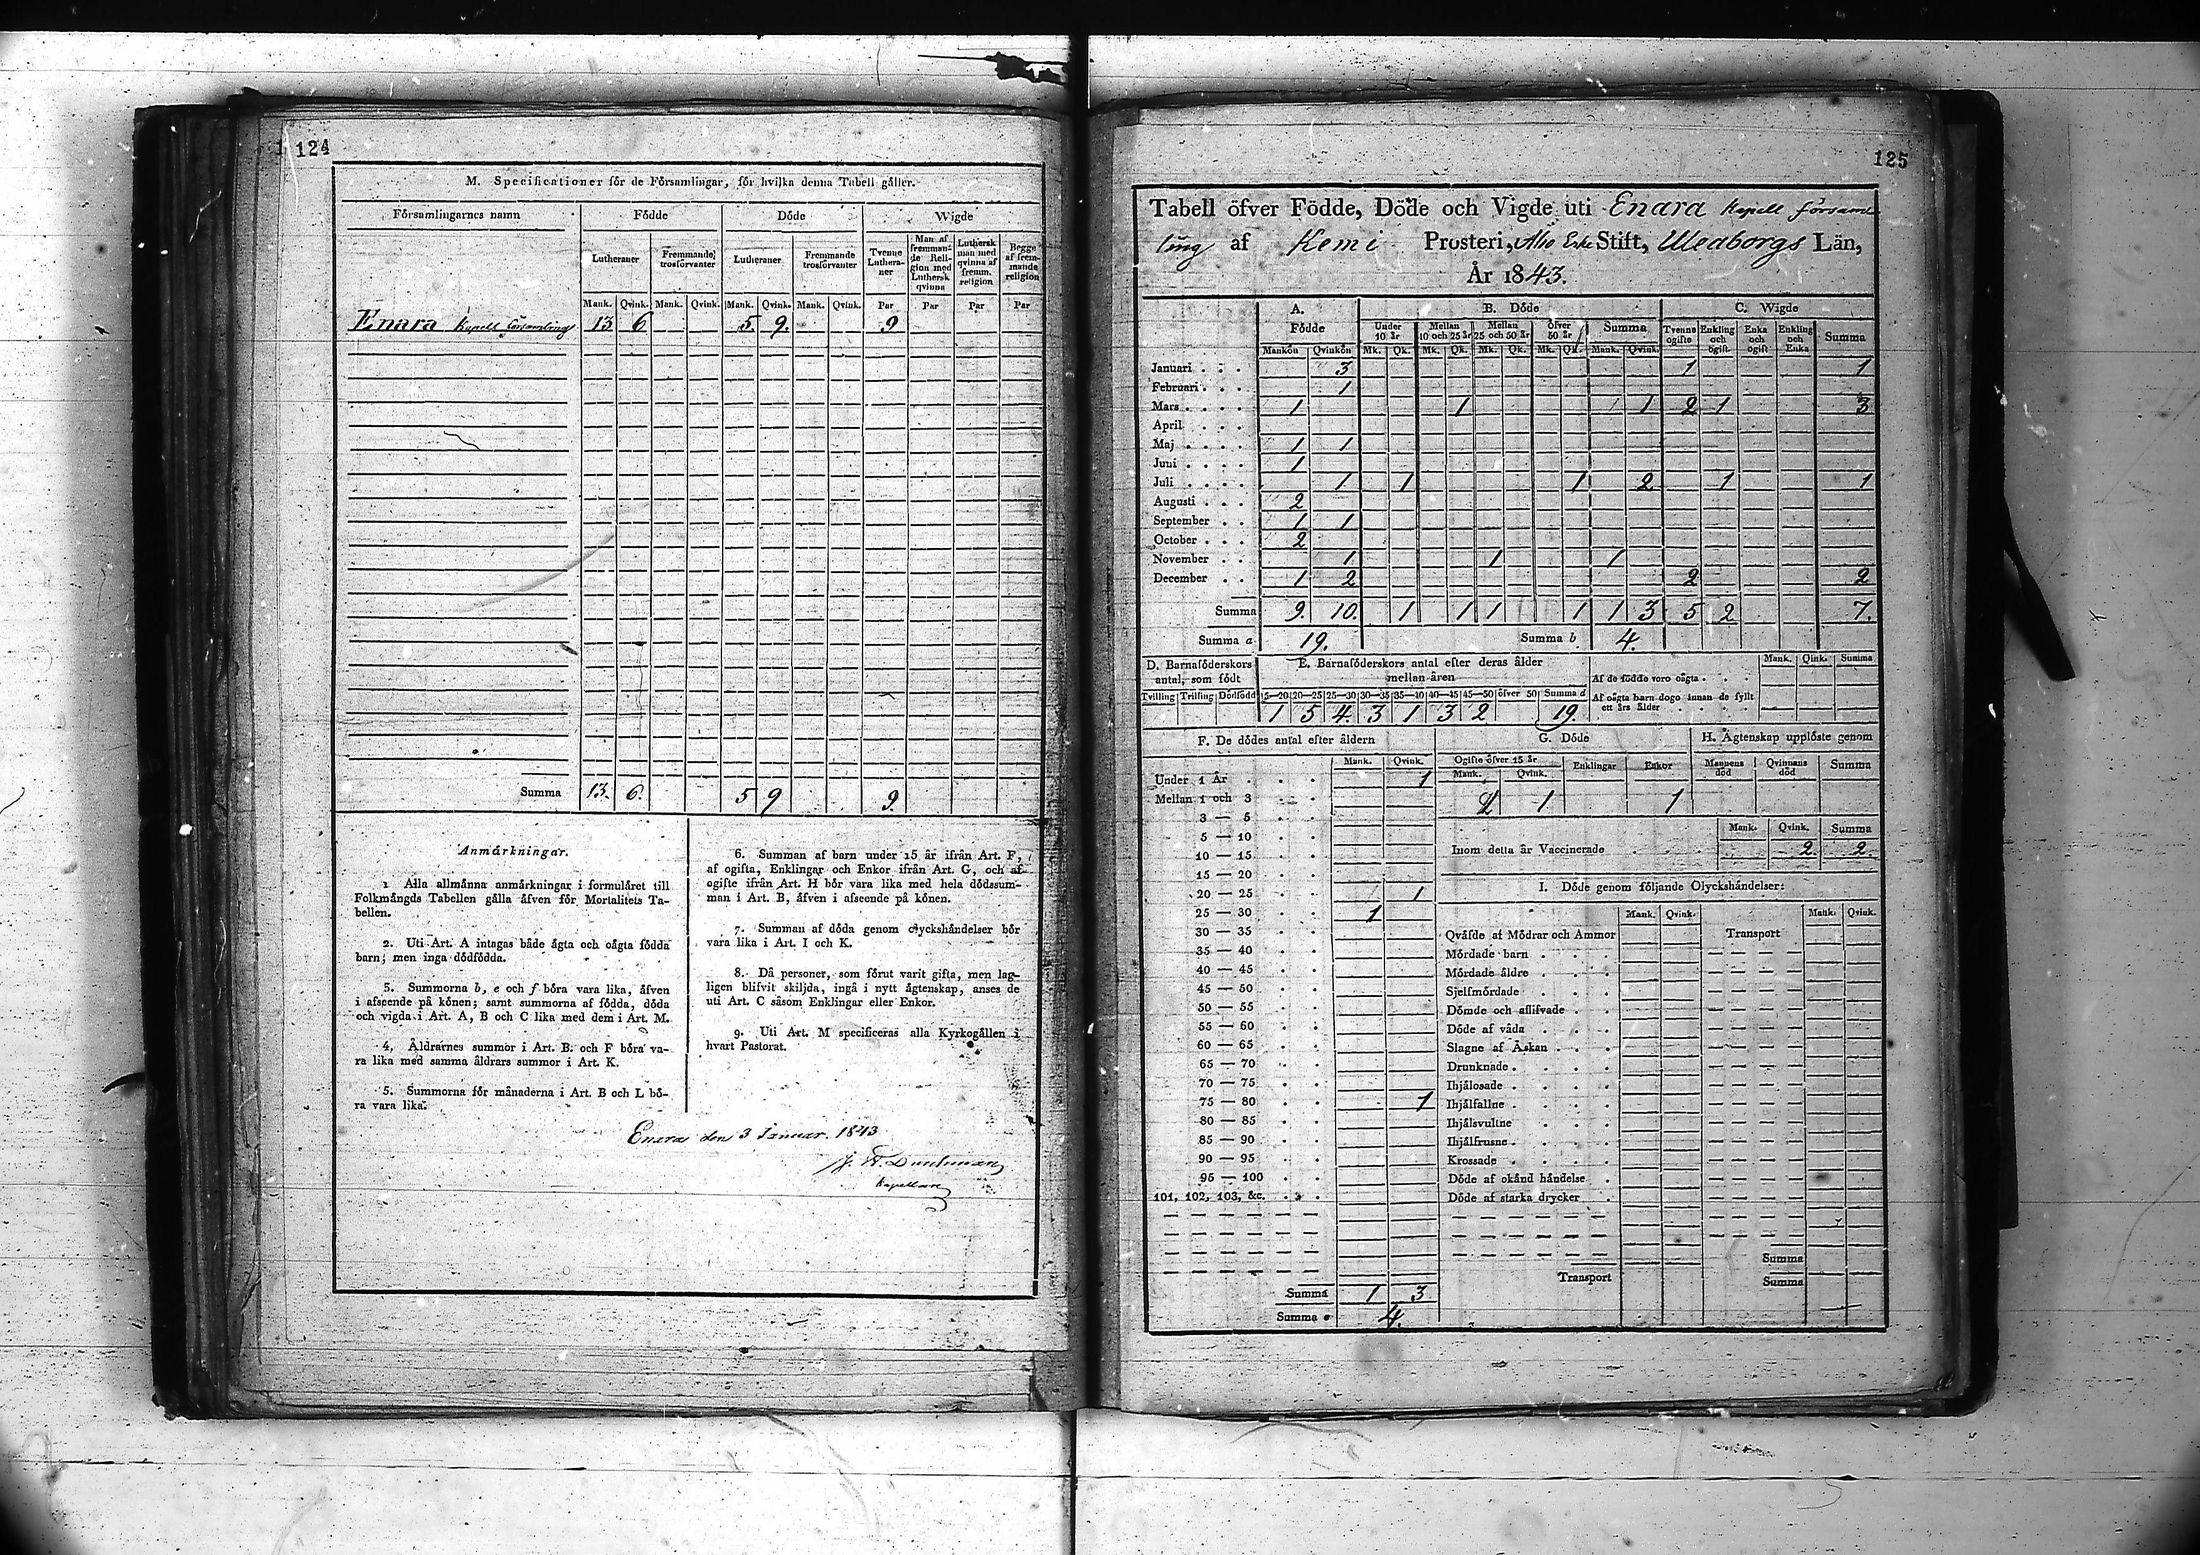 124
M. Specificationer för de Församlingar, för hvilka denna Tabell gäller.
Församlingarnes namn Födde Döde Wigde
Lutheraner Fremmande trosförvanter Lutheraner Fremmande trosförvanter Tvenne Lutheraner Man af fremmande Religion med Luthersk qvinna Luthersk man med qvinna af fremm. religion Begge af fremmande religion
Mank. Qvink. Mank. Qvink. Mank. Qvink. Mank. Qvink. Par Par Par Par
Enara Kapell församling 13 6 5. 9. 9
Summa 13. 6. 5 9 9.
Anmärkningar.
1 Alla allmänna anmärkningar i formuläret till
Folkmängds Tabellen gälla äfven för Mortalitets Ta-
bellen.
2. Uti Art. A intagas både ägta och oägta födda
barn; men inga dödfödda.
3. Summorna b, e och f böra vara lika, äfven
i afseende på könen; samt summorna af födda, döda
och vigda i Art. A, B och C lika med dem i Art. M.
4. Äldrarnes summor i Art. B. och F böra va-
ra lika med samma äldrars summor i Art. K.
5. Summorna för månaderna i Art. B och L bö-
ra vara lika.
6. Summan af barn under 15 år ifrån Art. F,
af ogifta, Enklingar och Enkor ifrån Art. G, och af
ogifte ifrån Art. H bör vara lika med hela dödssum-
man i Art. B, äfven i afseende på könen.
7. Summan af döda genom olyckshändelser bör
vara lika i Art. I och K.
8. Då personer, som förut varit gifta, men lag-
ligen blifvit skiljda, ingå i nytt ägtenskap, anses de
uti Art. C såsom Enklingar eller Enkor.
9. Uti Art. M specificeras alla Kyrkogällen i
hvart Pastorat.
Enara den 3 Januar. 1843
Kapellan
125
Tabell öfver Födde, Döde och Vigde uti Enara Kapell församl
ling af Kemi Prosteri, Åbo Erke Stift, Uleaborgs Län,
År 1843.
A. B. Döde C. Wigde
Födde Under 10 år Mellan 10 och 25 år Mellan 25 och 50 år öfver 50 år Summa Tvenne ogifte Enkling och ogift Enka och ogift Enkling och Enka Summa
Mankön Qvinkön Mk. Qk. Mk. Qk. Mk. Qk. Mk. Qk. Mank. Qvink.
Januari 3 1 1
Februari 1
Mars 1 1 1 2 1 3
April
Maj 1 1
Juni 1
Juli 1 1 1 2 1 1
Augusti 2
September 1 1
October 2
November 1 1 1
December 1 2 2 2
Summa 9. 10. 1 1 1 1 1 3 5 2 7.
Summa a 19. Summa b 4.
D. Barnaföderskors antal, som födt
E. Barnaföderskors antal efter deras ålder mellan åren
Mank. Qink. Summa
Af de födde voro oägta
Af oägta barn dogo innan de fyllt
ett års ålder
Tvilling Trilling Dödfödd 15—20 20—25 25—30 30—35 35—40 40—45 45—50 öfver 50 Summa d
1 5 4. 3 1 3 2 19.
F. De dödes antal efter åldern G. Döde H. Ägtenskap upplöste genom
Mank. Qvink. Ogifte öfver 15 år Mank. Qvink. Enklingar Enkor Mannens död Qvinnans död Summa
Under 1 År 1
Mellan 1 och 3 1 1
3 — 5
5 — 10
10 — 15
15 — 20
20 — 25 1
25 — 30 1
30 — 35
35 — 40
40 — 45
45 — 50
50 — 55
55 — 60
60 — 65
65 — 70
70 — 75
75 — 80 1
80 — 85
85 — 90
90 — 95
95 — 100
101, 102, 103, &c.
Summa 1 3
Summa e 4.
Mank. Qvink. Summa
Inom detta år Vaccinerade 2. 2.
I. Döde genom följande Olyckshändelser:
Mank. Qvink. Mank. Qvink.
Qväfde af Mödrar och Ammor Transport
Mördade barn
Mördade äldre
Sjelfmördade
Dömde och aflifvade
Döde af våda
Slagne af Åskan
Drunknade
Ihjälosade
Ihjälfallne
Ihjälsvultne
Ihjälfrusne
Krossade
Döde af okänd händelse
Döde af starka drycker
Summa
Transport Summa